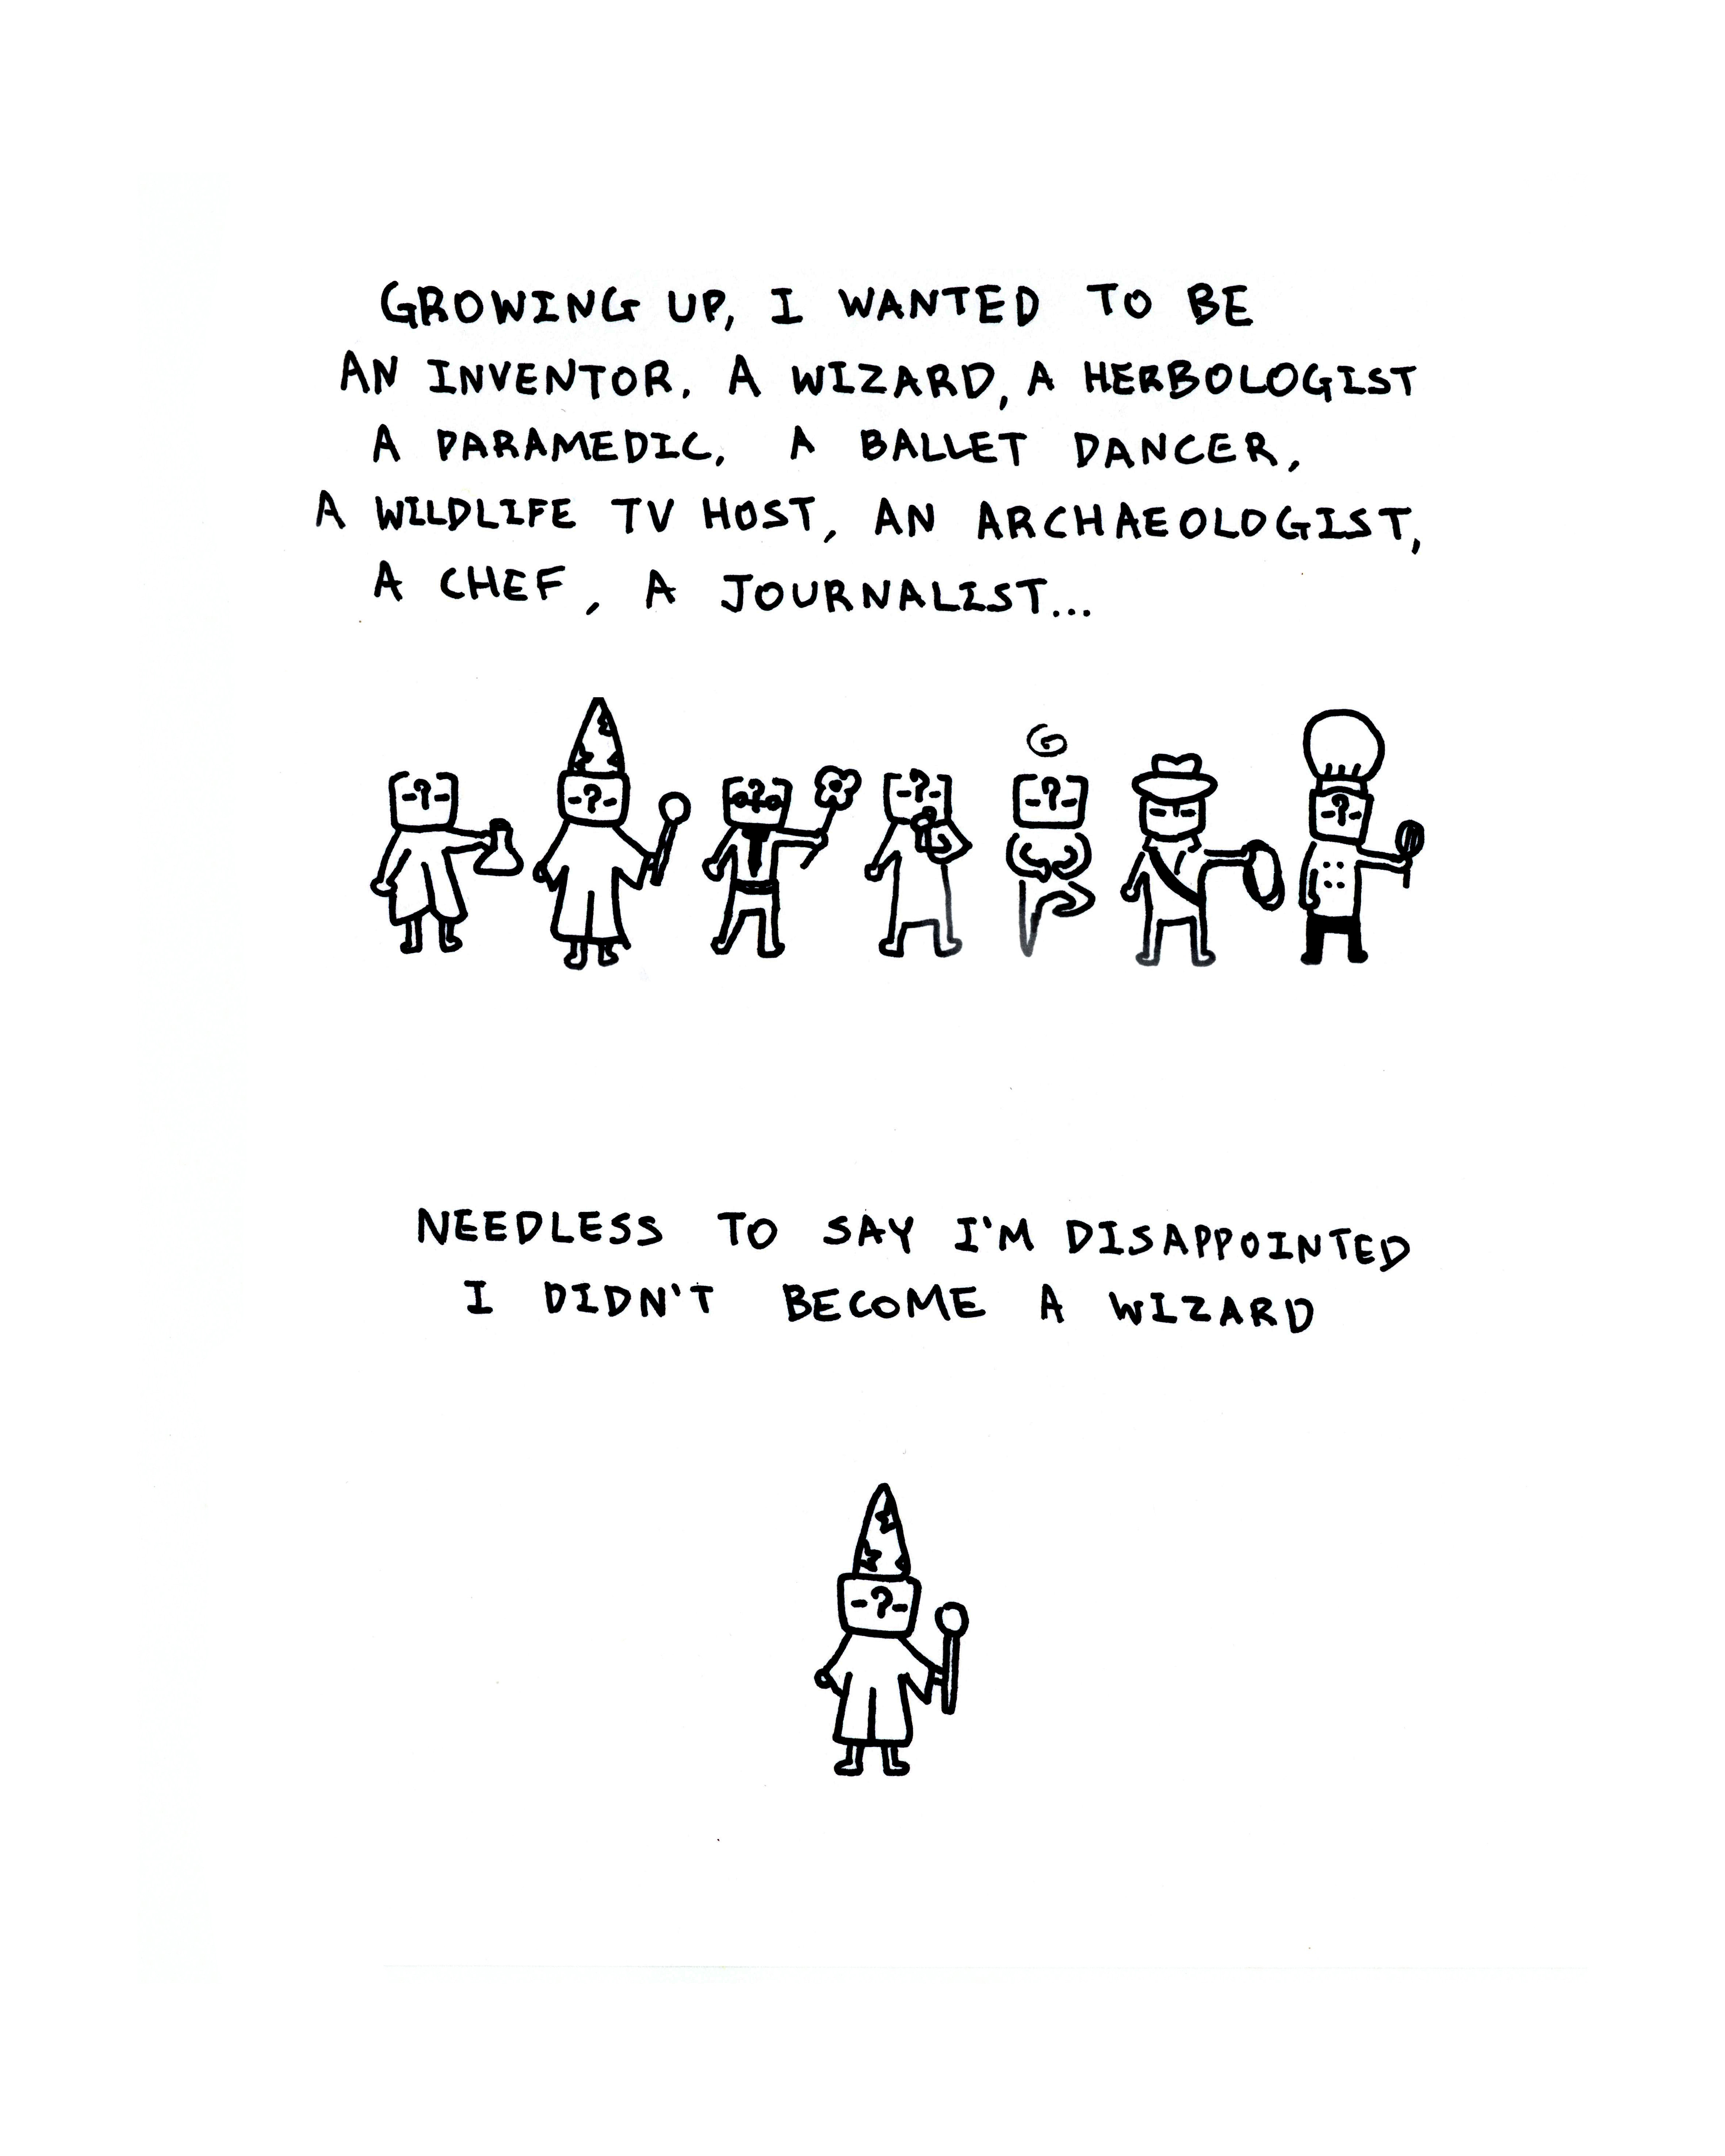 GROWING UP, I WANTED TO BE
AN INVENTOR, A WIZARD, A HERBOLOGIST
A PARAMEDIC, A BALLET DANCER,
A WILDLIFE TV HOST, AN ARCHAEOLOGIST,
A CHEF, A JOURNALIST...
NEEDLESS TO SAY I'M DISAPPOINTED
I DIDN'T BECOME A WIZARD